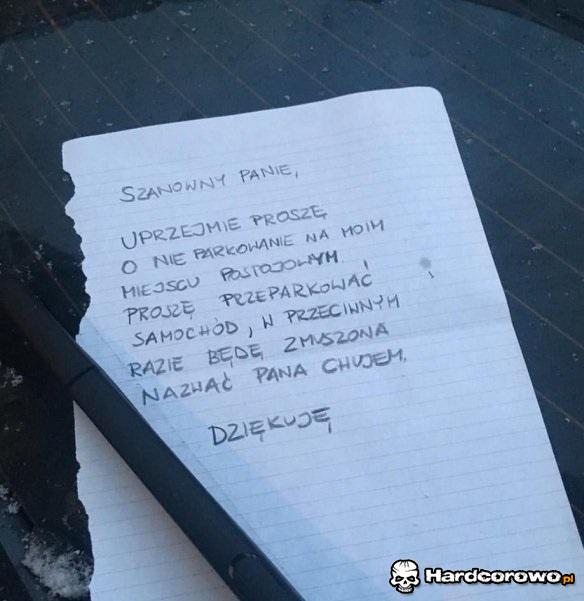 SZANOWNY PANIE,
UPRZEJMIE PROSZĘ
O NIE PARKOWANIE NA MOIM
MIEJSCU POSTOJOWYM I
PROSZĘ PRZEPARKOWAĆ
SAMOCHÓD, W PRZECIWNYM
RAZIE BĘDĘ ZMUSZONA
NAZWAĆ PANA CHUJEM.
DZIĘKUJĘ
Hardcorowo.pl